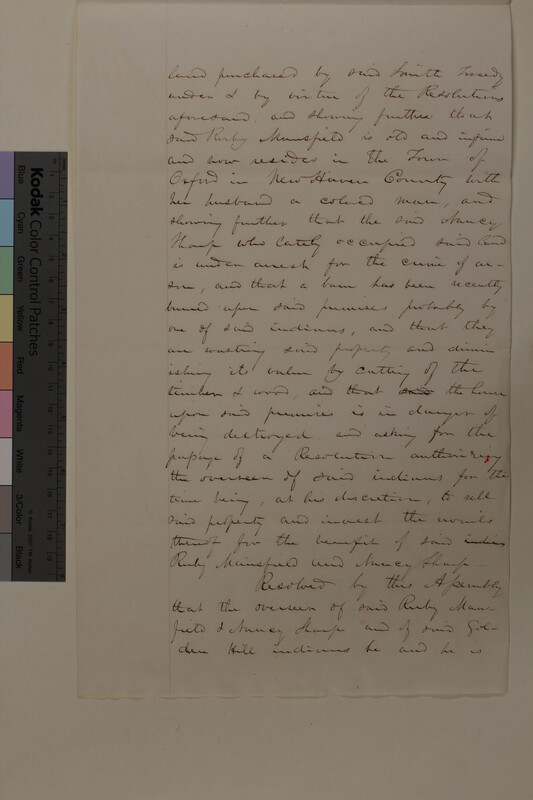 land purchased by said Smith Tweedy
under & by virtue of the Resolutions
aforesaid, and showing further that
said Ruby Mansfield is old and infirm
and now resides in the Town of
Oxford in New Haven County with
her husband a colored man, and
showing further that the said Nancy
Sharp who lately occupied said land
is under arrest for the crime of ar-
son, and that a barn has been recently
burned upon said premises probably by
one of said indians, and that they
are wasting said property and dimin
ishing its value by cutting of the
timber & wood, and that said the house
upon said premises is in danger of
being destroyed and asking for the
passage of a Resolution authorizing
the overseer of said indians for the
time being, at his discretion, to sell
said property and invest the avails
thereof for the benefit of said indians
Ruby Mansfield and Nancy Sharp -
Resolved by this Assembly
that the overseer of said Ruby Mans-
field & Nancy Sharp and of said Gol-
den Hill indians be and he is
Kodak Color Control Patches
Blue
Cyan
Green
Yellow
Red
Magenta
White
3/Color
Black